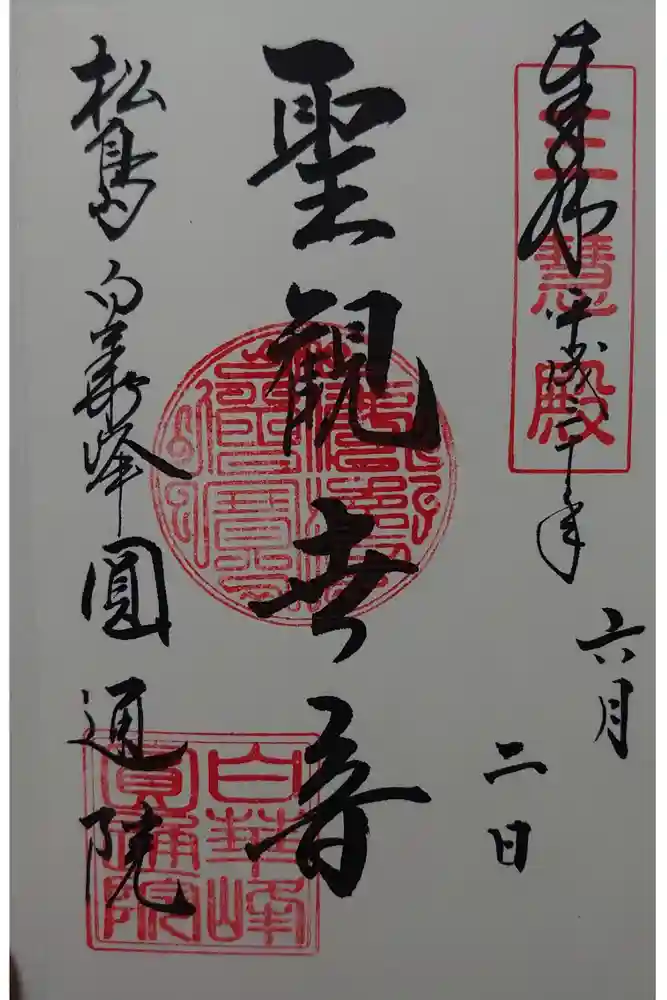 奉拝 平成三十年
六月
二日
三慧殿
聖観世音
松島 白華峰 圓通院
白華峰
圓通院